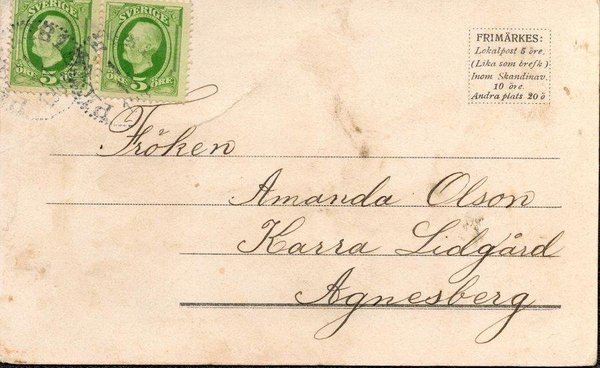 SVERIGE
5 ÖRE 5
SVERIGE
ÖRE 5 ÖRE
FRIMÄRKEN:
Lokalpost 5 öre.
(Lika som brefk)
Inom Skandinav.
10 öre.
Andra plats. 20 ö
Fröken
Amanda Olson
Karra Lidgård
Agnesberg